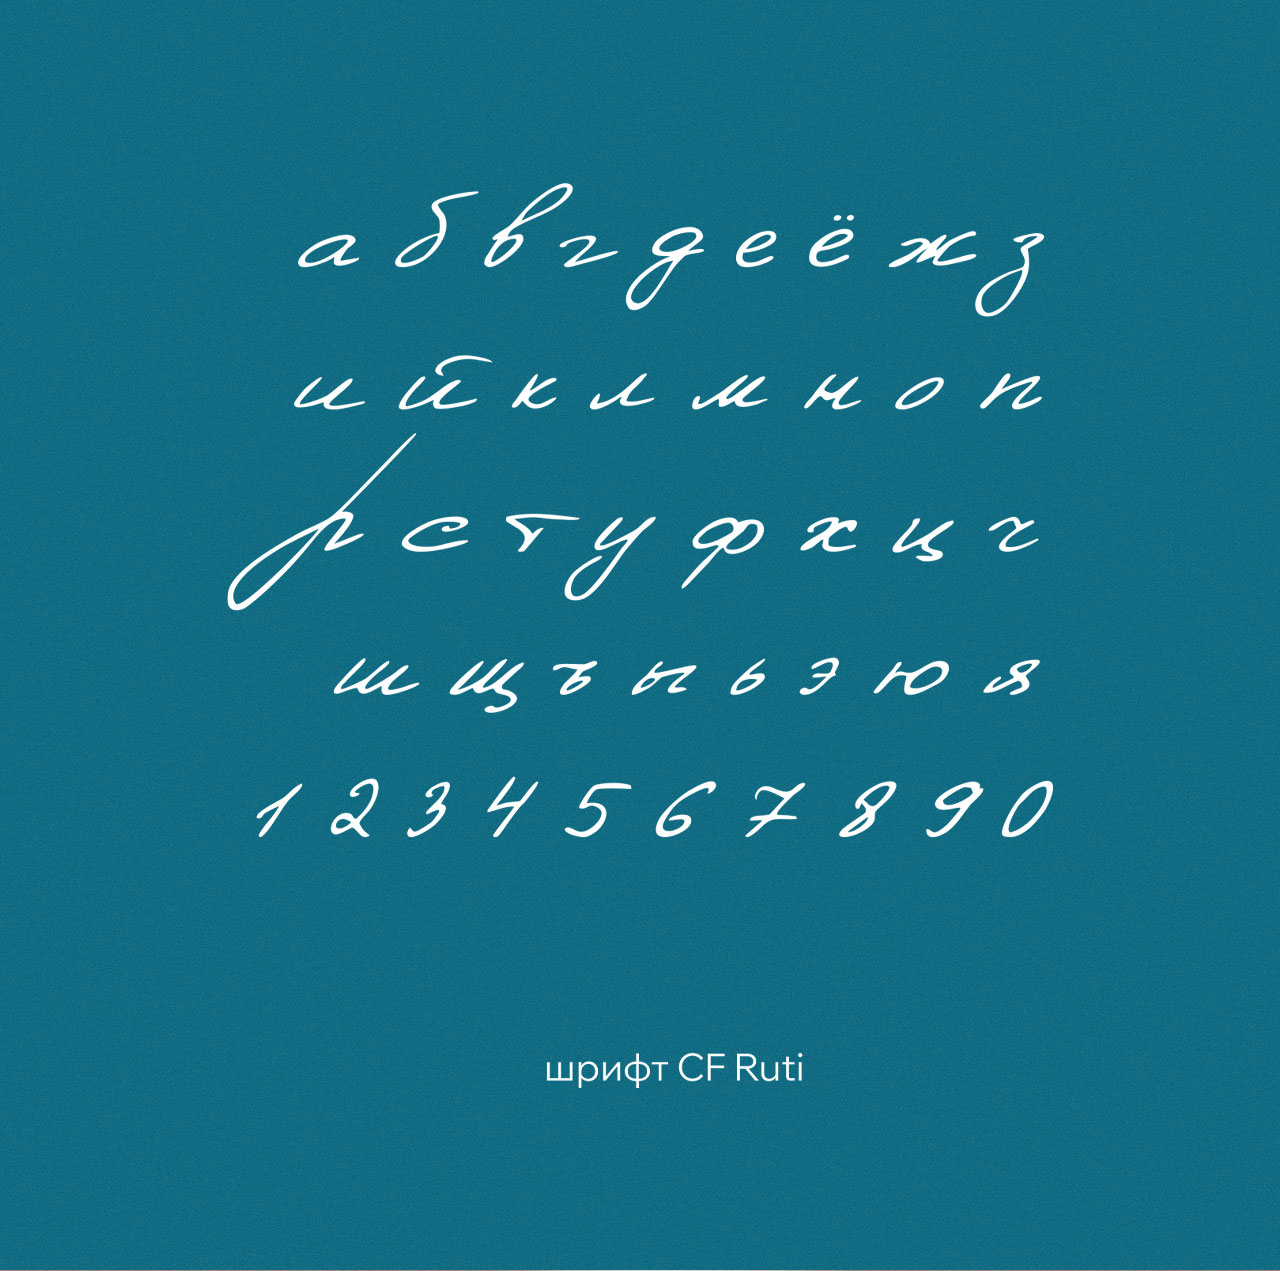 а б в г д е ё ж з
и й к л м н о п
р с т у ф х ц ч
ш щ ъ ы ь э ю я
1 2 3 4 5 6 7 8 9 0
шрифт CF Ruti